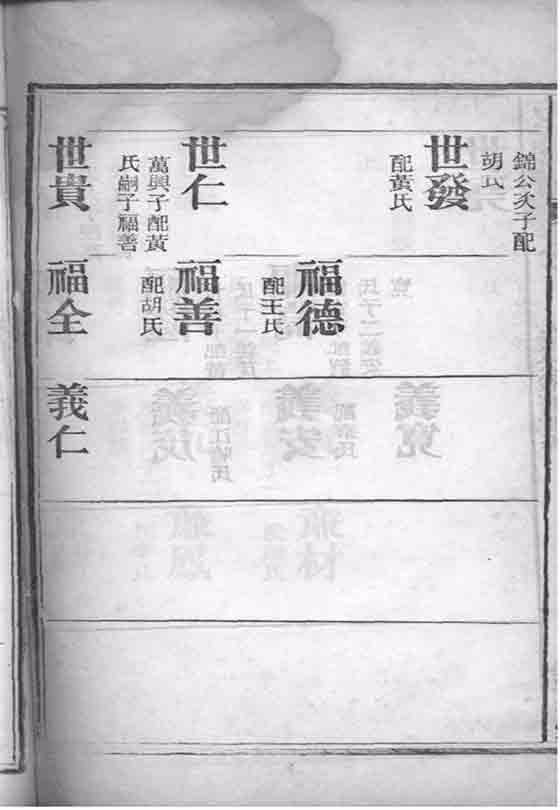 錦公次子配
胡氏
世發
配黃氏
世仁
萬興子配黃
氏嗣子福善
世貴
福德
配王氏
福善
配胡氏
福全
義仁